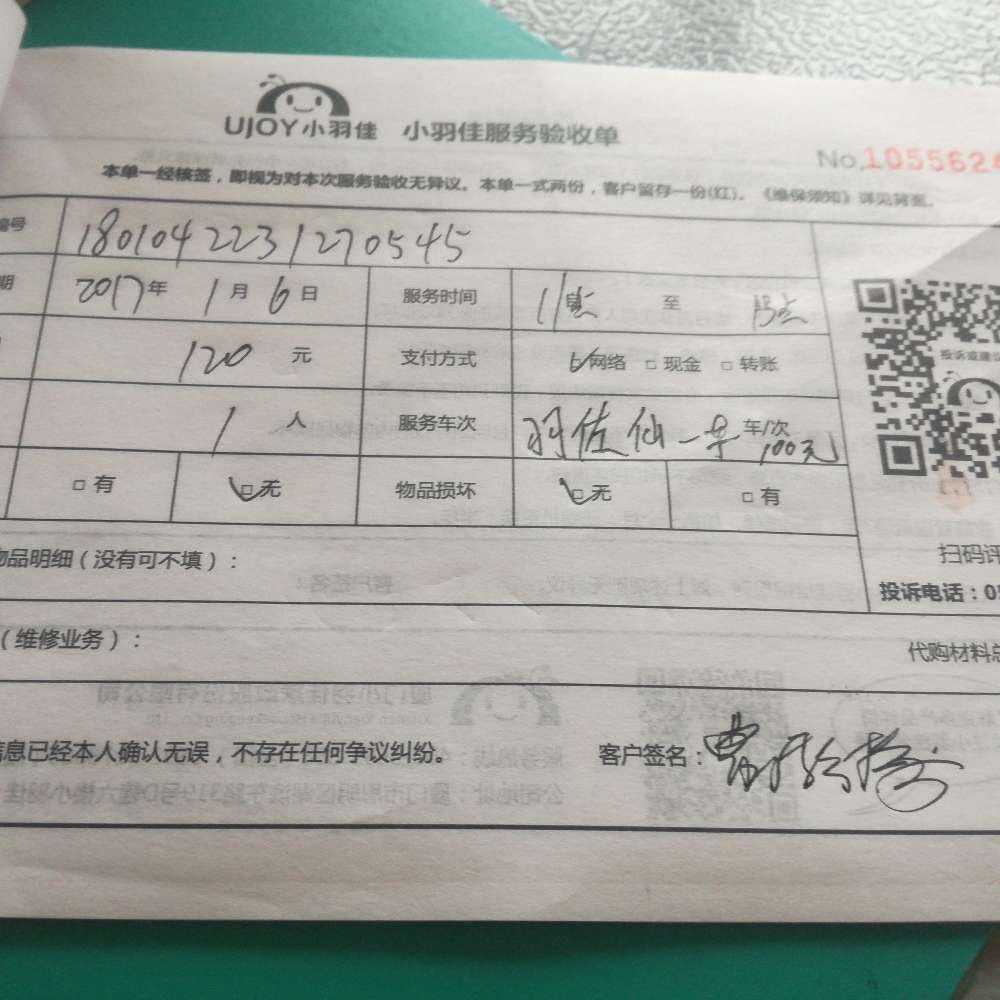 UJOY小羽佳 小羽佳服务验收单
No.1055624
本单一经核签，即视为对本次服务验收无异议。本单一式两份，客户留存一份(红)。《维保须知》详见背面。
编号 1801042231270545
期 2017年 1月 6日 服务时间 11点 至 15点
120 元 支付方式 ☑网络 □现金 □转账
1 人 服务车次 车/次
100元
□有 ☑无 物品损坏 ☑无 □有
投诉或建
物品明细（没有可不填）：
扫码评
投诉电话：05
（维修业务）：
代购材料总
信息已经本人确认无误，不存在任何争议纠纷。 客户签名：